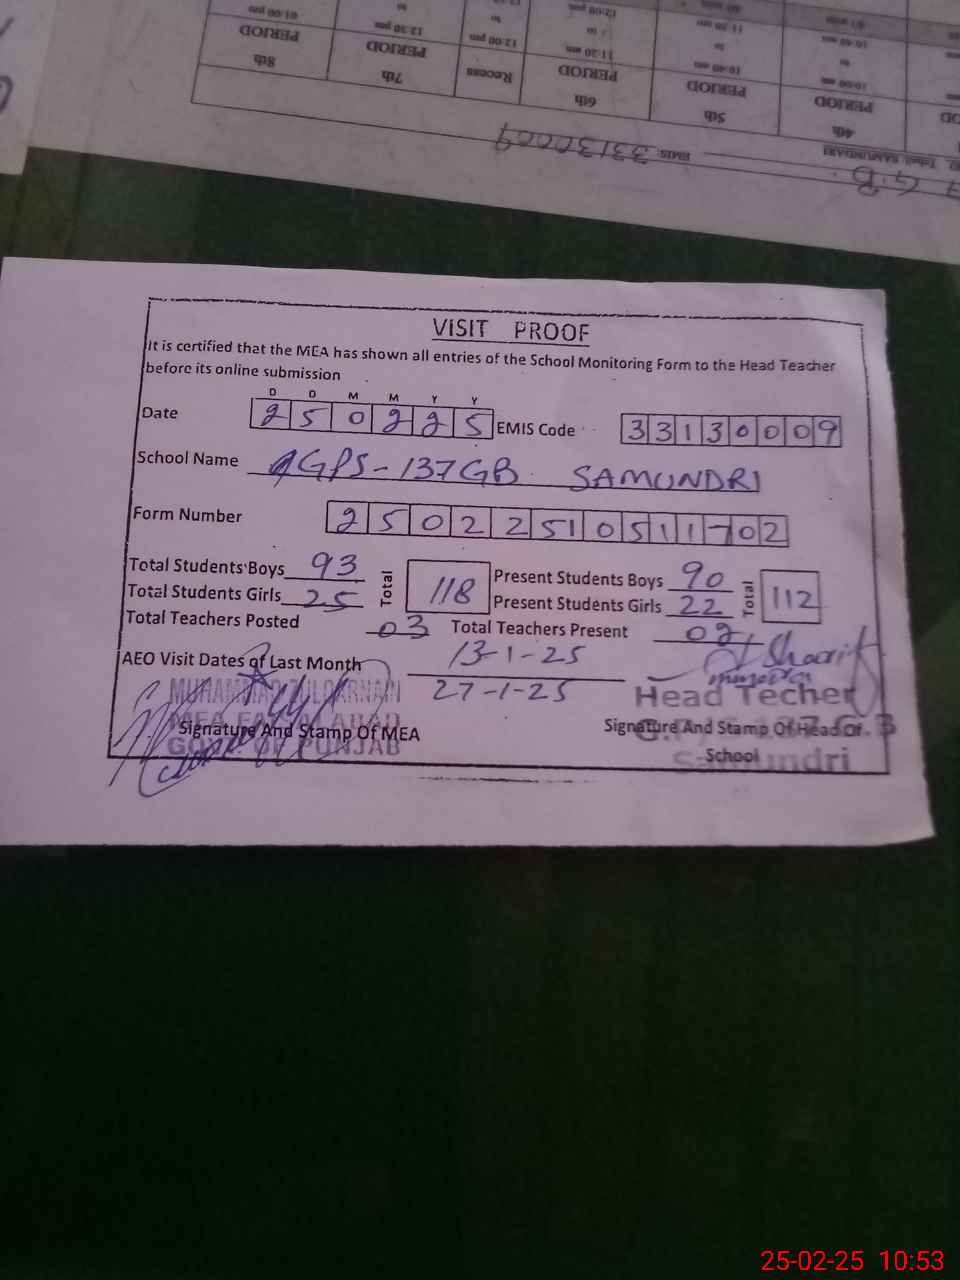 8th 7th Recess 6th 5th 4th
PERIOD PERIOD 12:00 pm PERIOD PERIOD PERIOD
01:00 pm 12:30 pm to 11:20 am 10:40 am 10:00 am
to to to to
12:00 pm 11:20 am 10:40 am
Tehsil SAMUNDARI EMIS: 33130009
G.B
VISIT PROOF
It is certified that the MEA has shown all entries of the School Monitoring Form to the Head Teacher
before its online submission
D D M M Y Y
Date 250225 EMIS Code 33130009
School Name GPS-137GB SAMUNDRI
Form Number 2502251051 1702
Total Students Boys 93 Total 118 Present Students Boys 90 Total 112
Total Students Girls 25 Present Students Girls 22
Total Teachers Posted 03 Total Teachers Present 02
AEO Visit Dates of Last Month 13-1-25
27-1-25
MUHAMMAD ZULQARNAIN
MEA FAISALABAD
GOVT. OF PUNJAB
Signature And Stamp Of MEA
Head Techer
Signature And Stamp Of Head Of
School
Samundri
25-02-25 10:53